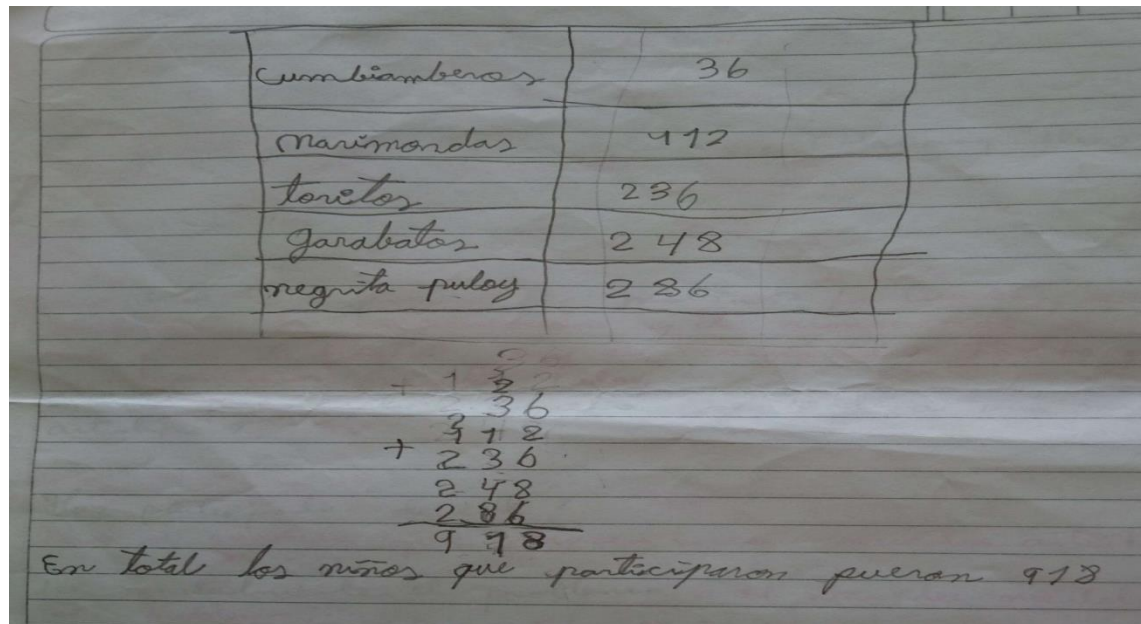 cumbiamberos 36
marimondas 112
toritos 236
garabatos 248
negrita puloy 286
36
112
+ 236
248
286
918
En total los niños que participaron pueran 918